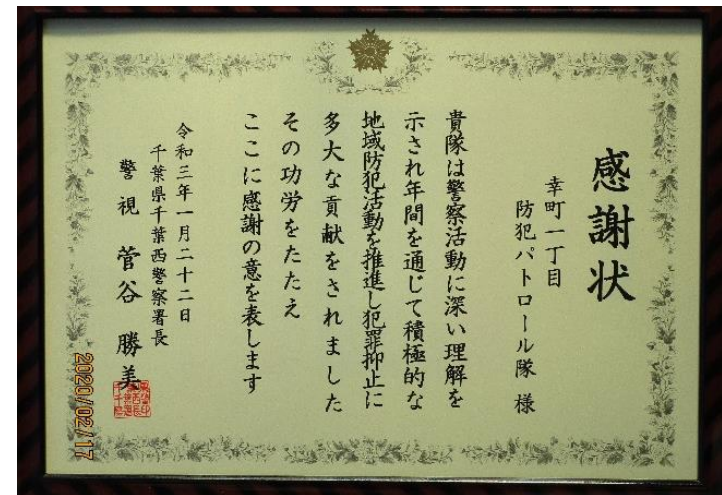 感謝状
幸町一丁目
防犯パトロール隊 様
貴隊は警察活動に深い理解を
示され年間を通じて積極的な
地域防犯活動を推進し犯罪抑止に
多大な貢献をされました
その功労をたたえ
ここに感謝の意を表します
令和三年一月二十二日
千葉県千葉西警察署長
警視 菅谷 勝美
2020/02/17